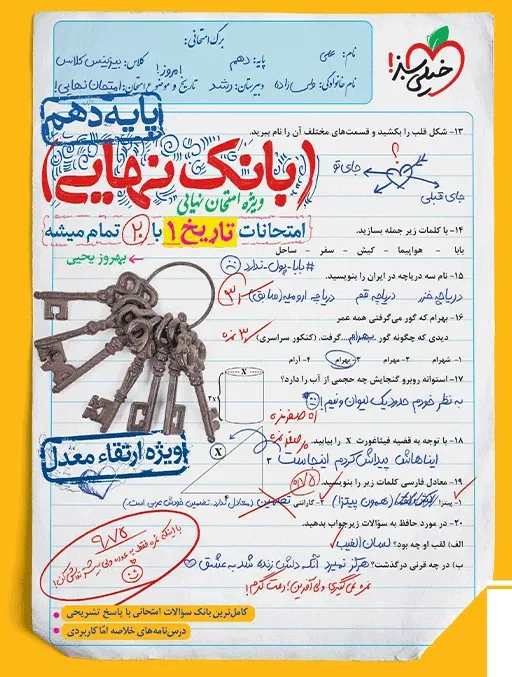 برگ امتحانی:
نام: علی
پایه: دهم
کلاس: بیزینس کلاس
نام خانوادگی:
دبیرستان: رشد
تاریخ و موضوع امتحان: امروز! امتحان نهایی!
خیلی سبز!
پایه دهم
۱۳- شکل قلب را بکشید و قسمت‌های مختلف آن را نام ببرید.
؟
جای تو
جای قبلی
(بانک نهایی)
ویژه امتحان نهایی
امتحانات تاریخ ۱ با ۲۰ تمام میشه
بهروز یحیی
۱۴- با کلمات زیر جمله بسازید.
بابا - هواپیما - کیش - سفر - ساحل
#بابا-پول-ندارد
۱۵- نام سه دریاچه در ایران را بنویسید.
دریاچه خزر دریاچه قم دریاچه ارومیه (سابق)
۱۶- بهرام که گور می‌گرفتی همه عمر
دیدی که چگونه گور بهرام گرفت. (کنکور سراسری)
۱- شهرام ۲- مهرام ۳- بهرام ۴- آرام
۱۷- استوانه روبرو گنجایش چه حجمی از آب را دارد؟
X
۲x
به نظر خودم حدود یک لیوان و نیم!
۱۸- با توجه به قضیه فیثاغورث X را بیابید.
X
۳
۴
ایناهاش پیداش کردم اینجاست
ویژه ارتقاء معدل
۱۹- معادل فارسی کلمات زیر را بنویسید.
۱- پیتزا (همون پیتزا) ۲- گارانتی تضمین
۲۰- در مورد حافظ به سؤالات زیر جواب بدهید.
الف) لقب او چه بود؟ لسان الغیب
ب) در چه قرنی درگذشت؟ هرگز نمیرد آنکه دلش زنده شد به عشق
۹٫۷۵
کامل‌ترین بانک سؤالات امتحانی با پاسخ تشریحی
درس‌نامه‌های خلاصه امّا کاربردی